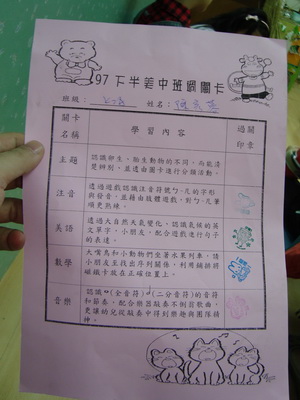 97下半年中班闖關卡
班級： 姓名：
關卡名稱 學習內容 過關印章
主題
認識卵生、胎生動物的不同，而能清
楚辨別，並透由圖卡進行分類活動。
注音
透過遊戲認識注音符號ㄅ-ㄦ的字形
與發音，並藉由肢體遊戲，對ㄅ-ㄦ筆
順更熟練。
美語
透過大自然天氣變化，認識氣候的英
文單字，小朋友，配合遊戲進行句子
的表達。
數學
大嘴鳥和小動物們坐著水果列車，請
小朋友主找出序列關係，利用鋪排將
磁鐵卡放在正確位置上。
音樂
認識（全音符）（二分音符）的音符
和節奏，配合樂器敲奏不倒翁歌曲，
更讓幼兒從敲奏中得到樂趣與團隊精
神。